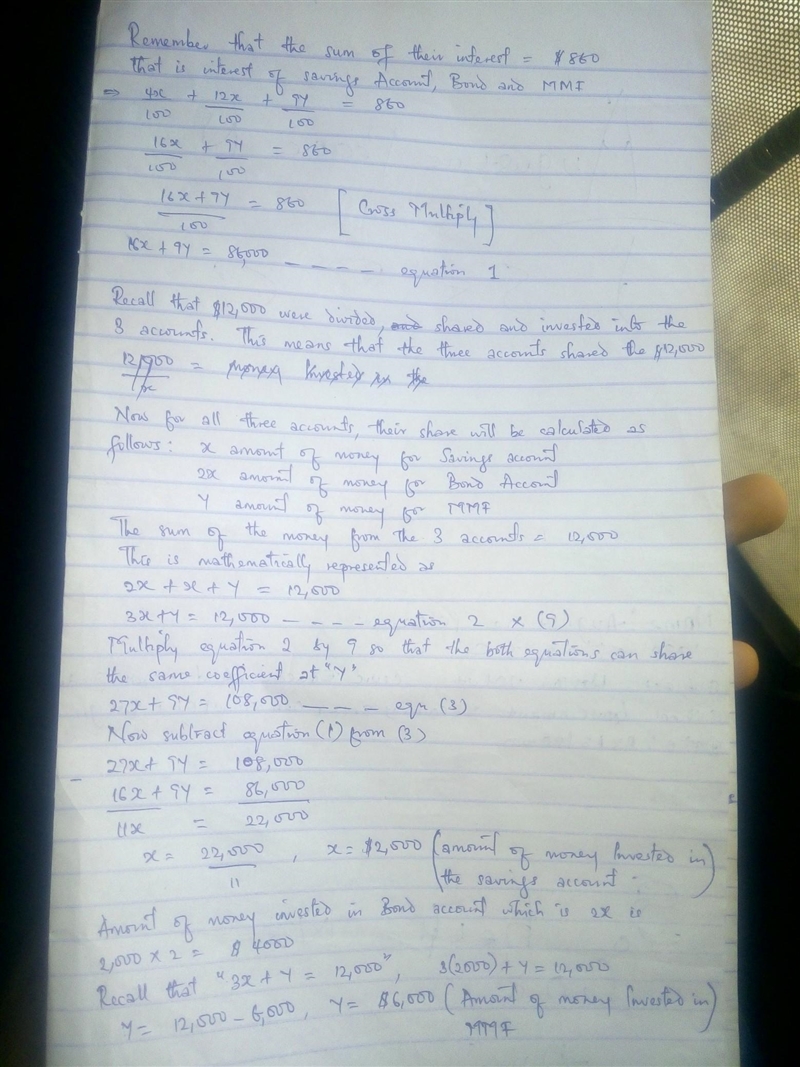 Remember that the sum of their interest = $860
that is interest of savings Account, Bond and MMF
⇒ 4x/100 + 12x/100 + 9Y/100 = 860
16x/100 + 9Y/100 = 860
16x + 9Y/100 = 860 [Cross Multiply]
16x + 9Y = 86,000 ---- equation 1
Recall that $12,000 were divided, and shared and invested into the
3 accounts. This means that the three accounts shared the $12,000
12,000/x = money Invested in the
Now for all three accounts, their share will be calculated as
follows: x amount of money for Savings account
2x amount of money for Bond Account
Y amount of money for MMF
The sum of the money from the 3 accounts = 12,000
This is mathematically represented as
2x + x + Y = 12,000
3x + Y = 12,000 ---- equation 2 x (9)
Multiply equation 2 by 9 so that the both equations can share
the same coefficient at "Y"
27x + 9Y = 108,000 --- eqn (3)
Now subtract equation (1) from (3)
27x + 9Y = 108,000
- 16x + 9Y = 86,000
11x = 22,000
x = 22,000/11, x = $2,000 (amount of money Invested in
the savings account.)
Amount of money invested in Bond account which is 2x is
2,000 x 2 = $4000
Recall that "3x + Y = 12,000", 3(2000) + Y = 12,000
Y = 12,000 - 6,000, Y = $6,000 (Amount of money Invested in
MMF)